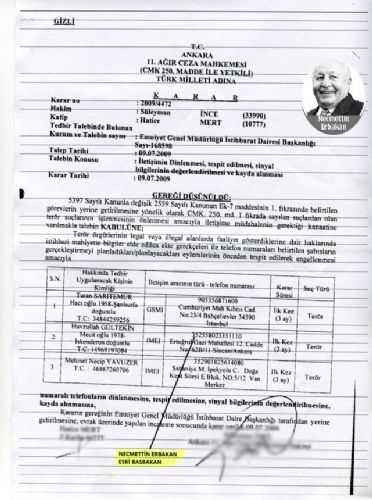 GİZLİ
T.C.
ANKARA
11. AĞIR CEZA MAHKEMESİ
(CMK 250. MADDE İLE YETKİLİ)
TÜRK MİLLETİ ADINA
K A R A R
Necmettin
Erbakan
Karar no : 2009/4472
Hakim : Süleyman İNCE (33990)
Katip : Hatice MERT (10777)
Tedbir Talebinde Bulunan
Kurum ve Talebin sayısı : Emniyet Genel Müdürlüğü İstihbarat Dairesi Başkanlığı
Sayı-168538
Talep Tarihi : 09.07.2009
Talebin Konusu : İletişimin Dinlenmesi, tespit edilmesi, sinyal
bilgilerinin değerlendirilmesi ve kayda alınması
Karar Tarihi : 09.07.2009
GEREĞİ DÜŞÜNÜLDÜ:
5397 Sayılı Kanunla değişik 2559 Sayılı Kanunun Ek-7 maddesinin 1. fıkrasında belirtilen
görevlerin yerine getirilmesine yönelik olarak CMK. 250. md. 1 fıkrada sayılan suçlardan olan
terör suçlarının işlenmesinin önlenmesi amacıyla iletişime müdahalenin gerekliliği kanaatine
varılmakla talebin KABULÜNE;
Terör örgütlerinin legal veya illegal alanlarda faaliyet gösterdiklerine dair haklarında
istihbari mahiyette bilgiler elde edilen ekte gerekçeleri ile telefon numaraları belirtilen şahısların
gerçekleştirmeyi planladıkları/planlayacakları eylemlerinin önceden tespit edilerek engellenmesi
amacıyla
S.N. Hakkında Tedbir Uygulanacak Kişinin Kimliği İletişim aracının türü - telefon numarası Karar Süresi Suç Türü
1 Turan Hacı oğlu 1958 doğumlu T.C: 34844259256 GSMI 905356871600 Cumhuriyet Mah Kıbrıs Cad. No:23/4 Bahçelievler 34590 İstanbul İlk Kez (3 ay) Terör
2 GÜLTEKİN Mecit oğlu 1978- İskenderun doğumlu T.C: 14569197084 IMEI Ertuğrul Gazi Mahallesi 12. Cadde Sincan/Ankara İlk Kez (3 ay) Terör
3 Mehmet Necip YAVUZER T.C. : 46867260706 IMEI 352901025614080 M. İpekyolu C. Doğa Kent Sitesi E Blok. NO:5/12 Van Merker İlk Kez (3 ay) Terör
numaralı telefonların dinlenmesine, tespit edilmesine, sinyal bilgilerinin değerlendirilmesine,
kayda alınmasına,
Kararın gereğinin Emniyet Genel Müdürlüğü İstihbarat Daire Başkanlığı tarafından yerine
getirilmesine, evrak üzerinde yapılan inceleme sonucunda karar
NECMETTİN ERBAKAN
ESKİ BAŞBAKAN